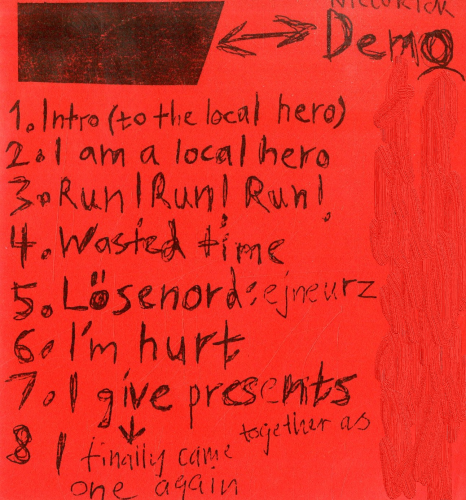 Demo
1. Intro (to the local hero)
2. I am a local hero
3. Run! Run! Run!
4. Wasted time
5. Lösenord: ejneurz
6. I'm hurt
7. I give presents
8 I finally came together as
one again